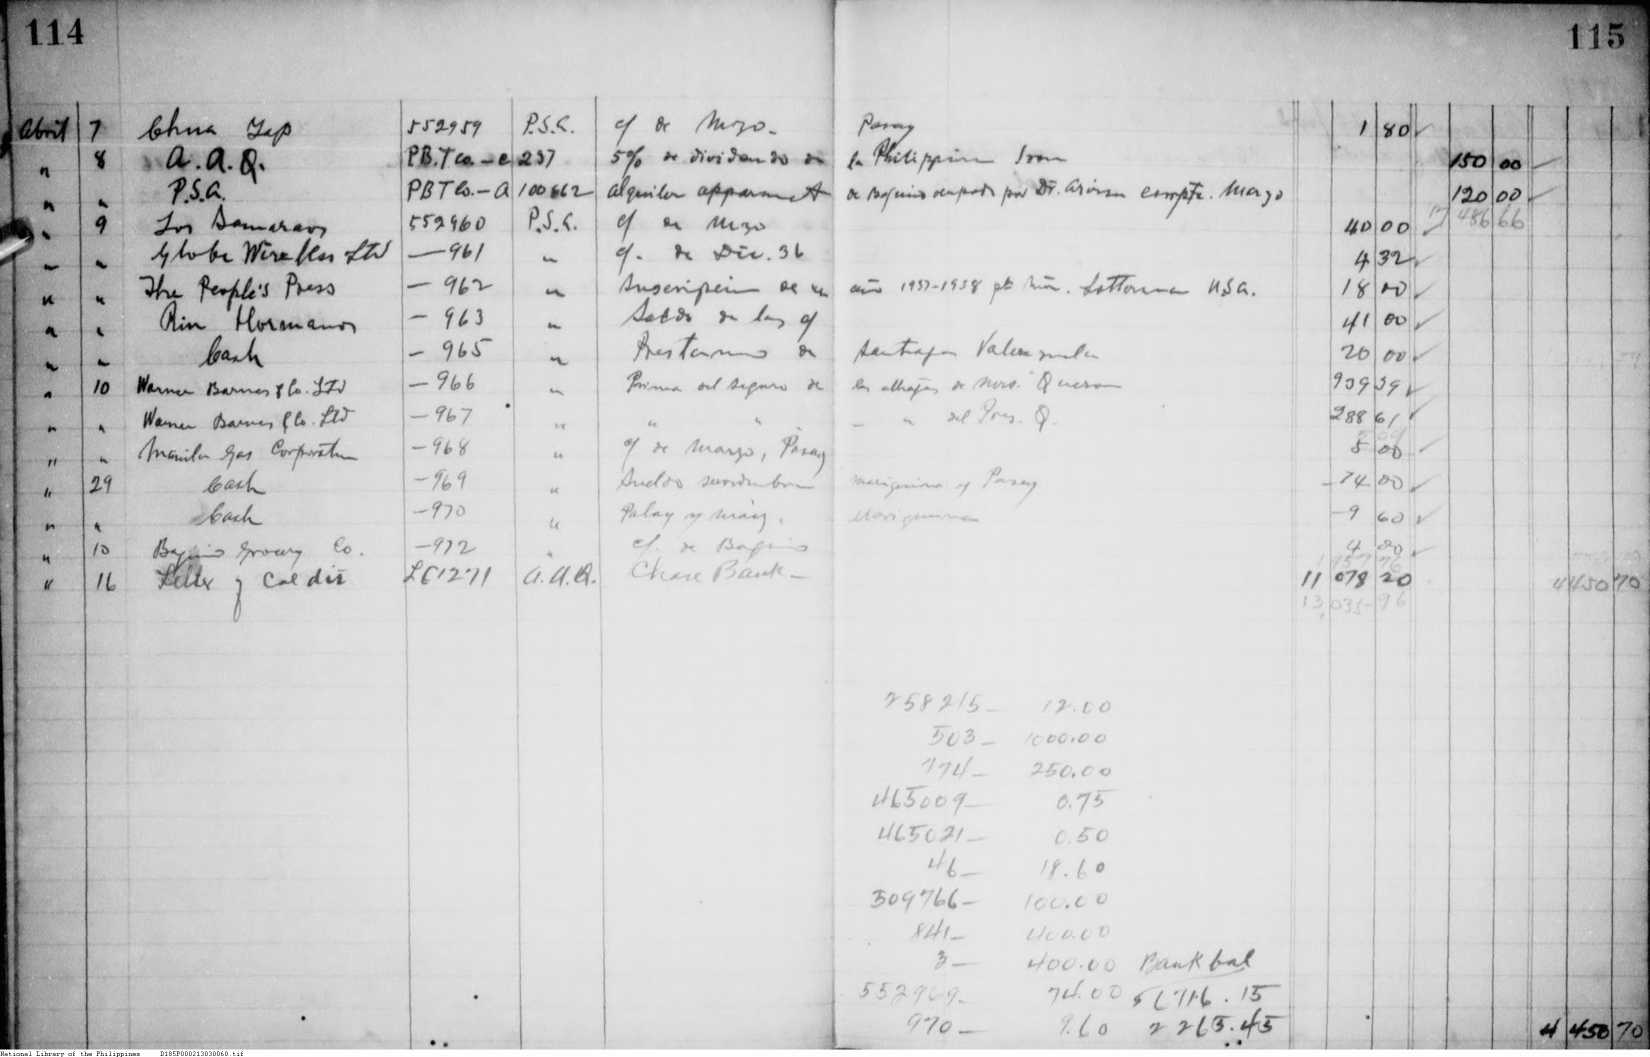 114
115
Abril 7 Chua Yap 552959 P.S.A. c/ de Mzo. Pasay 1 80 ✓
" 8 A.A.Q. PB.T Co. – C 237 5% de dividendo de la Philippine Iron 150 00 ✓
" " P.S.A. PBT Co. – A 100662 alquiler de Baguio ocupado por Dr. Marzo 120 00 ✓
486 66
" 9 Los 552960 P.S.A. c/ de Mzo 40 00 ✓
" " Globe Wireless Ltd — 961 " c/. de Dic. 36 4 32 ✓
" " The People's Press — 962 " Suscripcion de un año 1937-1938 U.S.A. 18 00 ✓
" " Hermanos — 963 " Saldo de las c/ 41 00 ✓
" " Cash — 965 " Prestamo de Santiago Valenzuela 20 00 ✓
" 10 Warner Barnes & Co. Ltd — 966 " Prima del seguro de las alhajas de Quezon 939 39 ✓
" " Warner Barnes & Co. Ltd — 967 " " " – " del Pres. Q. 288 61 ✓
" " Manila Gas Corporation — 968 " c/ de marzo, Pasay 5 00 ✓
" 29 Cash — 969 " Sueldo y Pasay 74 00 ✓
" " Cash — 970 " Palay y maiz, 9 60 ✓
" 10 Baguio Grocery Co. — 972 " c/. de Baguio 4 00 ✓
1 957 76
" 16 Letter of Credit LC1271 A.A.Q. Chase Bank – 11 078 20 4 450 70
13,035-96
258215 – 12.00
503 – 1000.00
774 – 250.00
465009 – 0.75
465021 – 0.50
46 – 18.60
509766 – 100.00
841 – 400.00
3 – 400.00 Bank bal
552969 – 74.00 716.15
970 – 9.60 2265.45
4 450 70
National Library of the Philippines D185P000213030060.tif